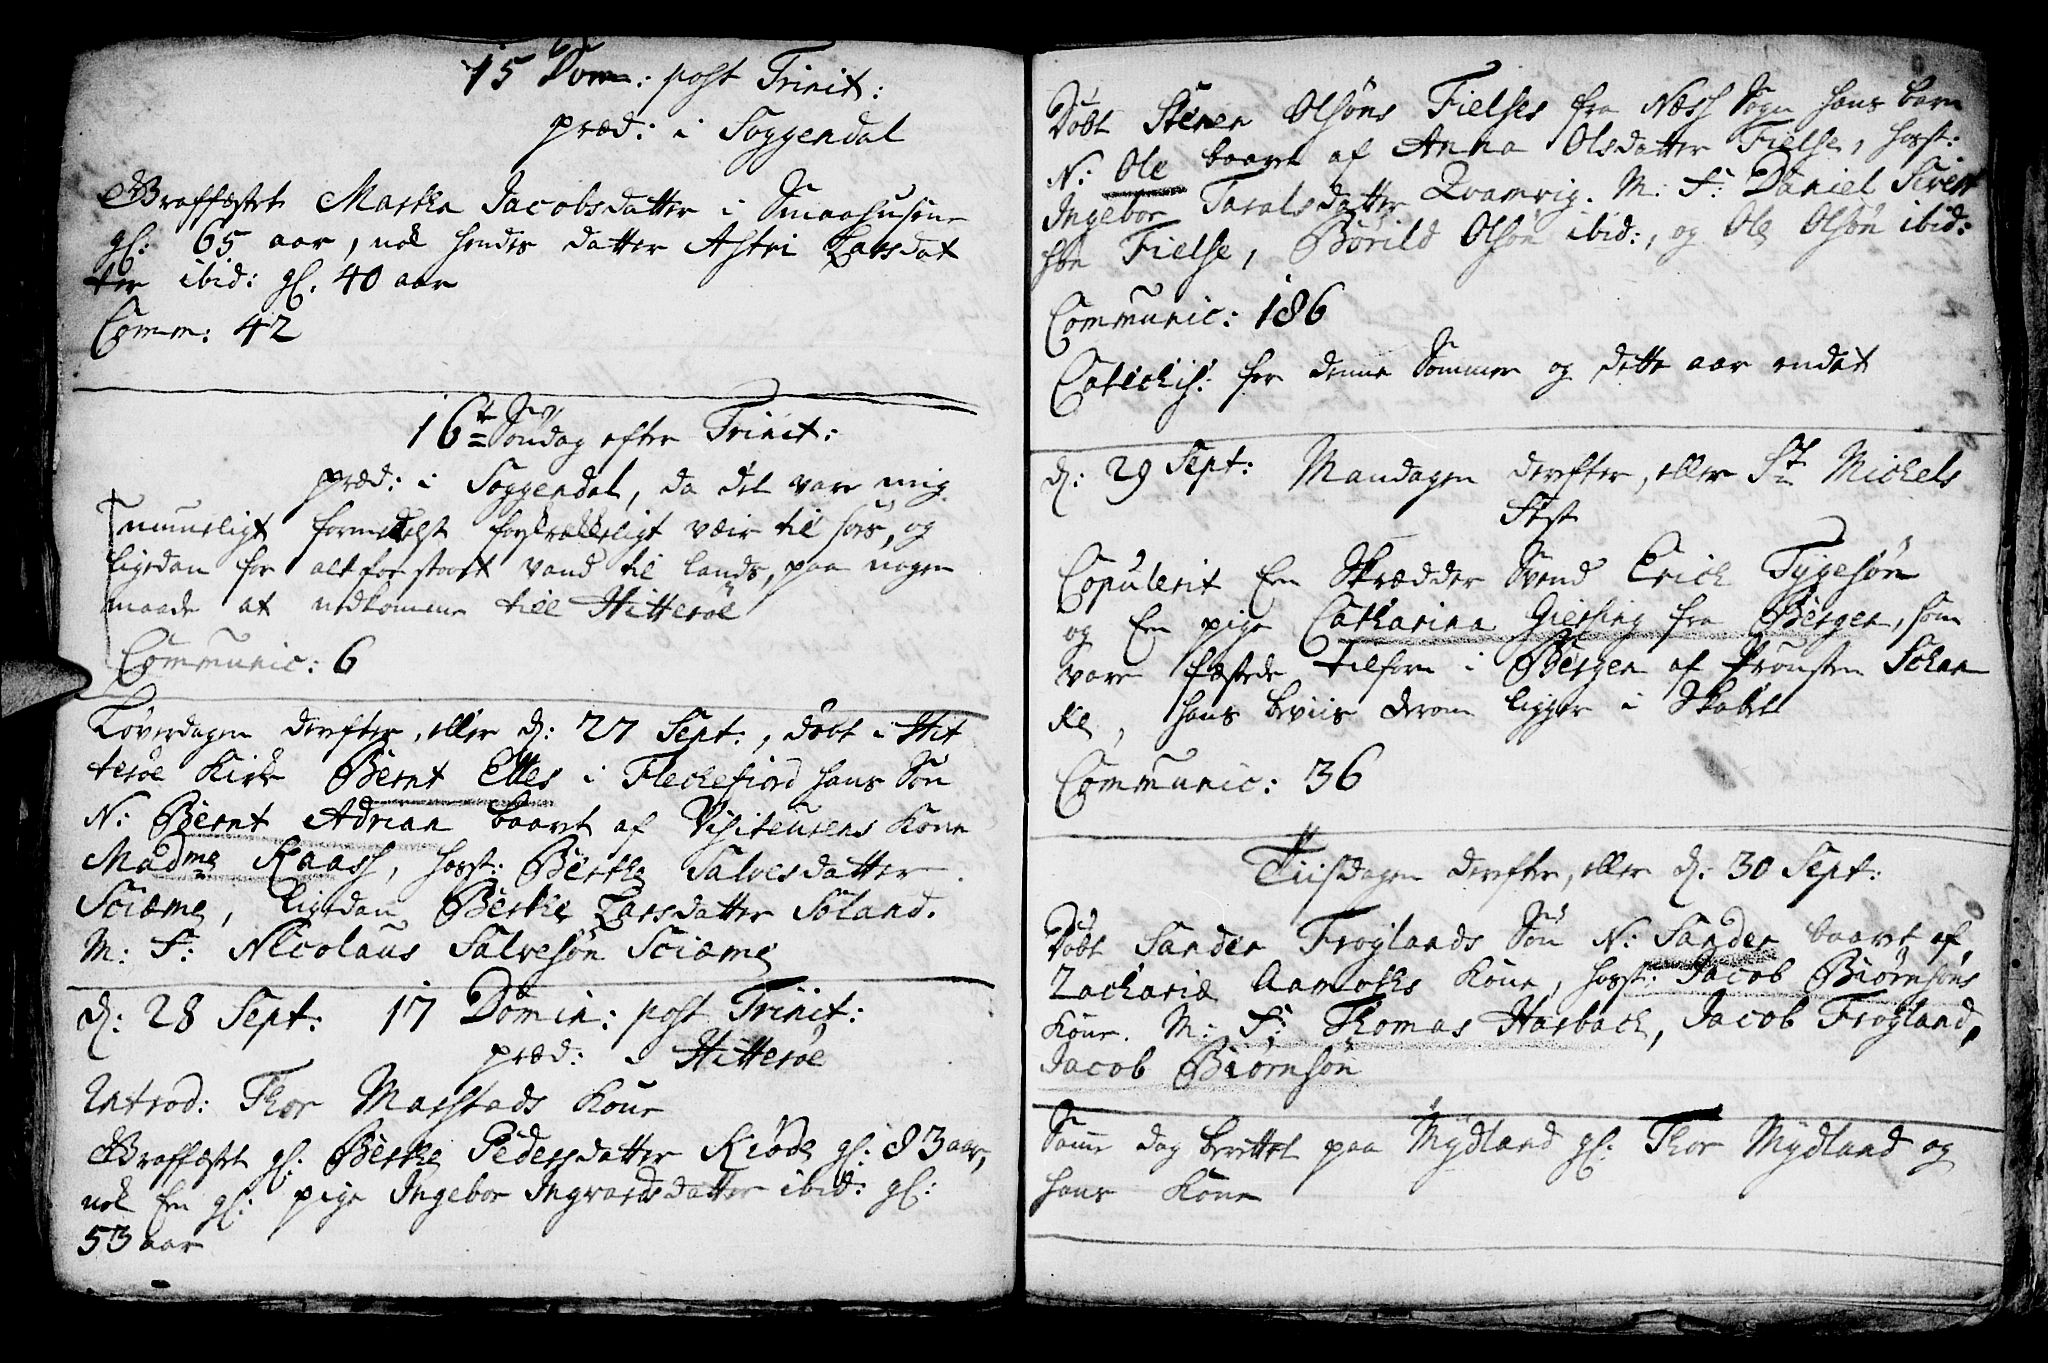 15 Dom: post Trinit:
præd: i Soggendal
Graffæstet Martha Jacobsdatter i Smaahusene
gl: 65 aar, nok hendes datter Astri Larsdat
ter ibid: gl. 40 aar
Comm: 42
16t Søndag efter Trinit:
præd: i Soggendal, da det vare mig
umueligt formedelst forskrækkeligt væir til søes, og
ligedan for alt for stoort vand til lands, paa nogen
maade at nedkomme till Hitterøe
Communic: 6
Løverdagen derefter, eller d: 27 Sept:, døbt i Hit
terøe Kirke Bernt Elles i Fleckefiord hans Søn
N: Bernt Adrian baaret af Visiteurens Kone
Madme Raash, hosst: Berthe Salvesdatter
Sciæme, ligedan Berthe Larsdatter Soland.
M: F: Nicolaus Salvesøn Sciæme
d: 28 Sept: 17 Domin: post Trinit:
præd: i Hitterøe
Introd: Thor Marstads Kone
Graffæstet gl: Berthe Pedersdatter Kiøde gl: 83 aar,
nok Een gl: pige Ingebor Ingvardsdatter ibid: gl:
53 aar
Døbt Stener Olsøns Fielses fra Næss Sogn hans barn
N: Ole baaret af Anna Olsdatter Fielse, hosst:
Ingebor Taralsdatter Qvamvig. M: F: Daniel Siver
søn Fielse, Børild Olsøn ibid:, og Ole Olsøn ibid:
Communic: 186
Catechis: for denne Sommer og dette aar endet
d: 29 Sept: Mandagen derefter, eller St Michels
Fest
Copulerit Een Skrædder Svend Erich Tygesøn
og Een pige Catharina Giersing fra Bergen, som
vare fæstede tilforn i Bergen af Prousten
hans beviis derom ligger i Skabet
Communic: 36
Tiisdagen derefter, eller d: 30 Sept:
Døbt Sander Froylands Søn N: Sander baaret af
Zachariæ Aamoths Kone, hosst: Jacob Biørnsøns
Kone. M: F: Thomas Harbach, Jacob Froyland,
Jacob Biørnsøn
Samme dag berettet paa Mydland gl: Thor Mydland og
hans Kone